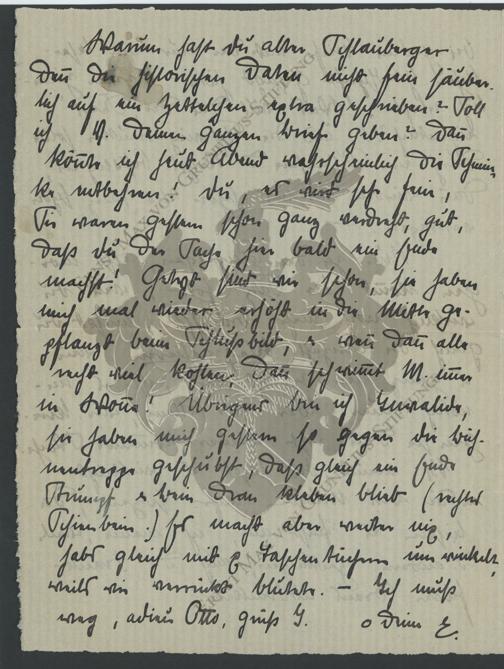 Warum hast du alter Schlauberger
denn die historischen Daten nicht fein säuber-
lich auf ein Zettelchen extra geschrieben? Soll
ich V. deinen ganzen Brief geben? Dann
könnte ich heut Abend wahrscheinlich die Schmin-
ke entbehren! Du, es wird sehr fein,
Sie waren gestern schon ganz verdreht, gut,
daß du der Sache hier bald ein Ende
machst! Geknipst sind wir schon, sie haben
mich mal wieder erhöht in die Mitte ge-
pflanzt beim Schlußbild, u wenn dann alle
recht viel kosten, dann schwimmt M. immer
in Wonne! Übrigens bin ich Invalide,
sie haben mich gestern so gegen die Büh-
nentreppe geschubst, daß gleich ein Ende
Strumpf u Bein dran kleben blieb (rechtes
Schienbein.) Es macht aber weiter nix,
habs gleich mit 2 Taschentüchern umwickelt,
weils wie verrückt blutete. – Ich muß
weg, adieu Otto, grüß J. o Deine E.